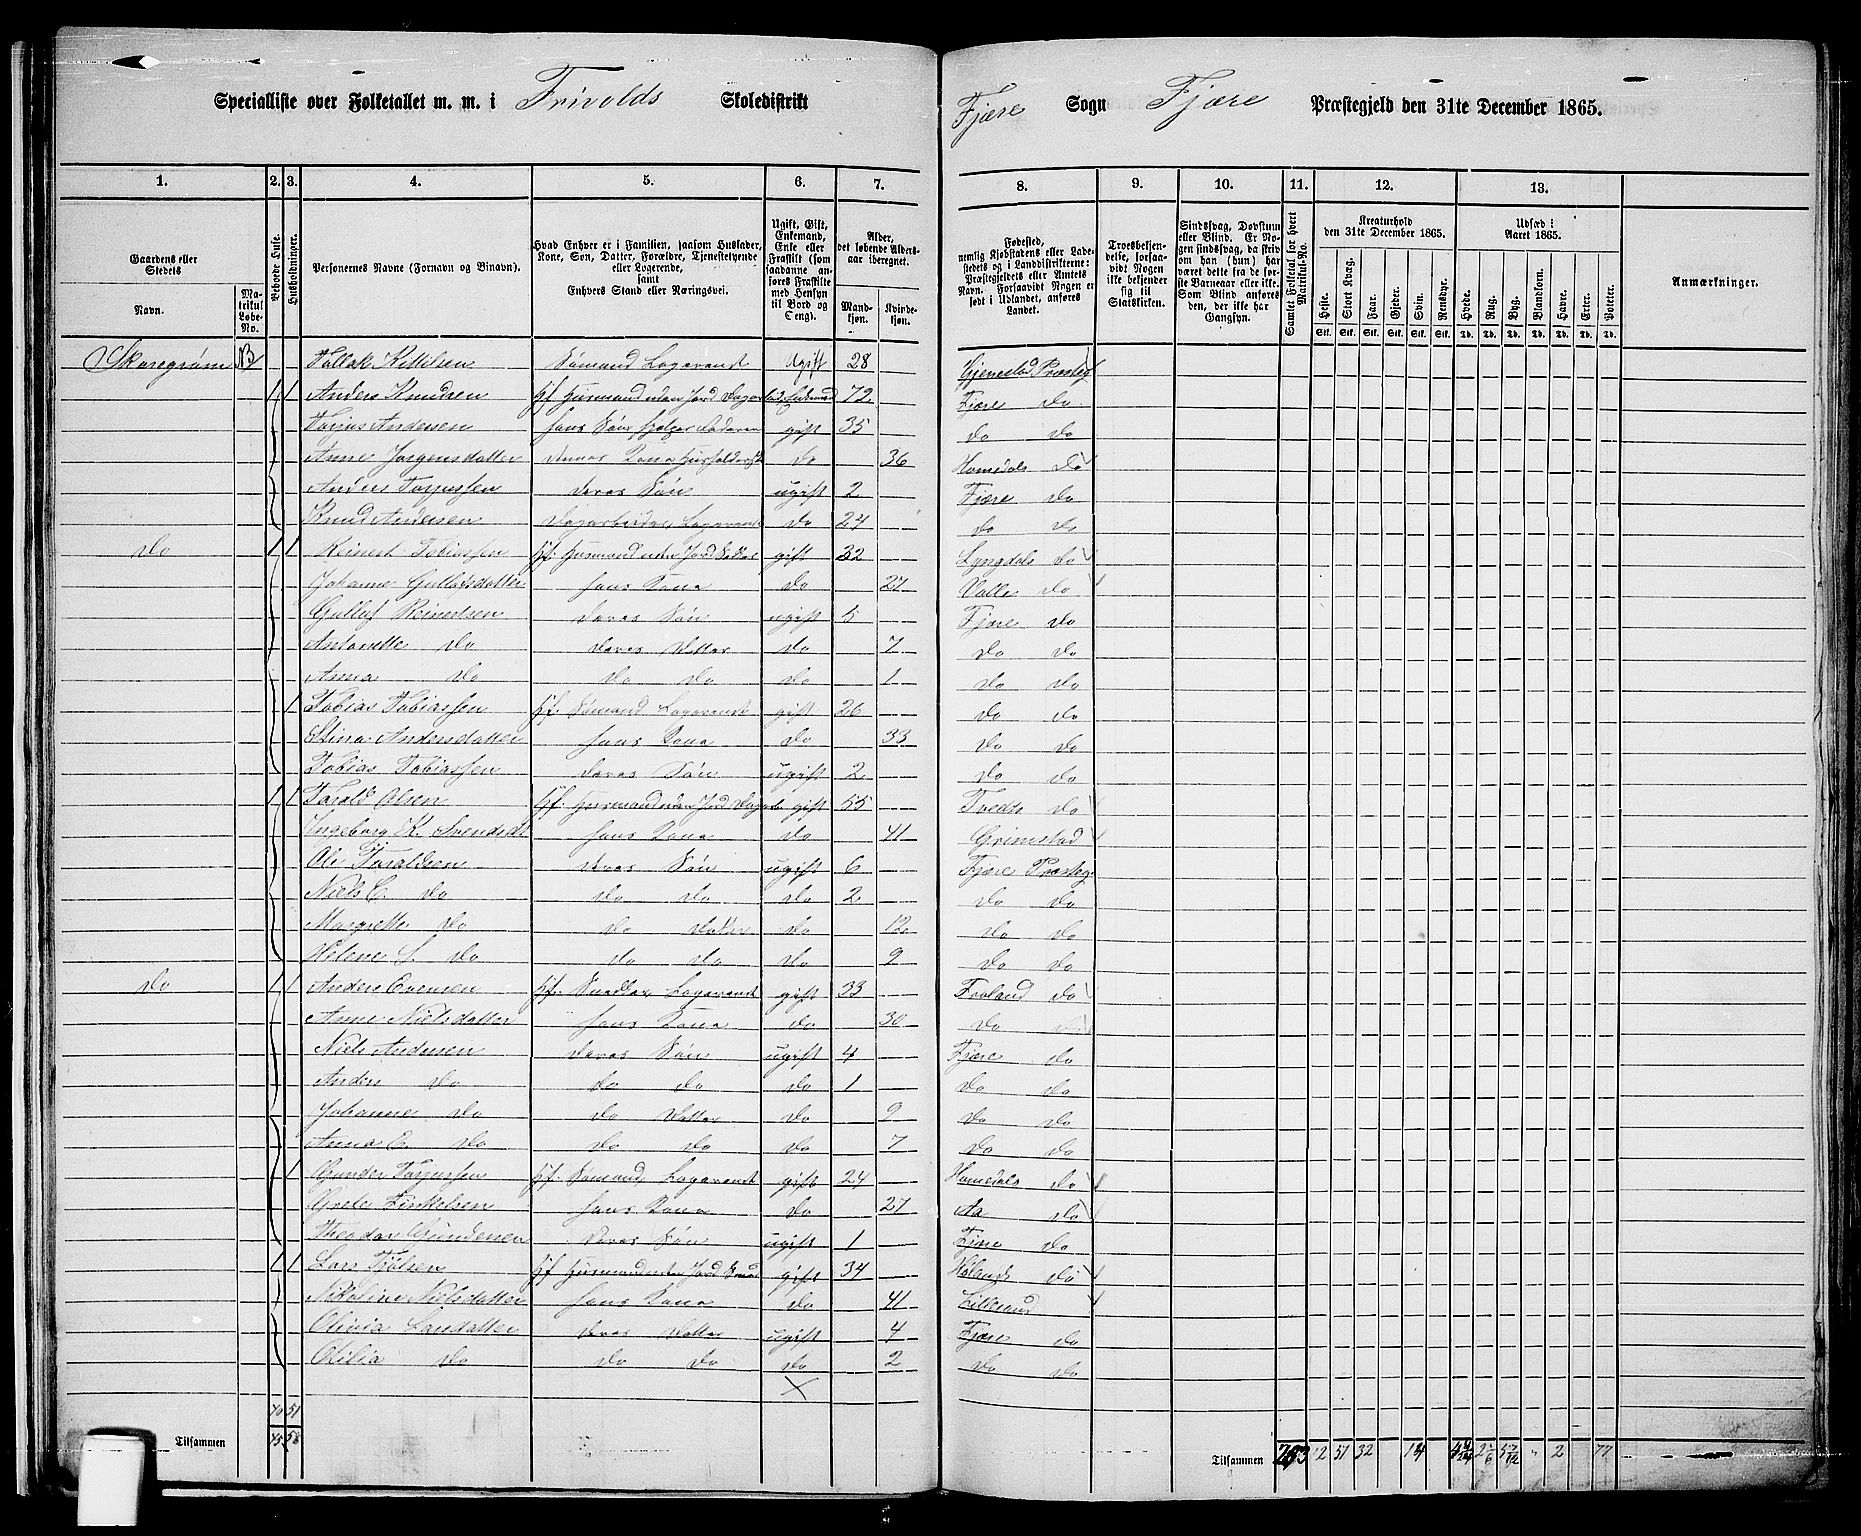 Specialliste over Folketallet m. m. i Frivolds Skoledistrikt Fjære Sogn Fjære Præstegjeld den 31te December 1865.
1. 2. 3. 4. 5. 6. 7. 8. 9. 10. 11. 12. 13.
Gaardens eller Stedets
Navn.
Matrikul Løbe-No.
Beboede Huse.
Husholdninger.
Personernes Navne (Fornavn og Binavn).
Hvad Enhver er i Familien, saasom Husfader, Kone, Søn, Datter, Forældre, Tjenestetyende eller Logerende, samt Enhvers Stand eller Næringsvei.
Ugift, Gift, Enkemand, Enke eller Fraskilt (som saadanne anføres Fraskilte med Hensyn til Bord og Seng).
Alder, det løbende Aldersaar iberegnet.
Mandkjøn. Kvindekjøn.
Fødested, nemlig Kjøbstadens eller Ladestedets og i Landdistrikterne: Præstegjeldets eller Amtets Navn. Forsaavidt Nogen er født i Udlandet, anføres Landet.
Troesbekjendelse, forsaavidt Nogen ikke bekjender sig til Statskirken.
Sindssvag, Døvstum eller Blind. Er Nogen sindssvag, da skrives om han (hun) har været dette fra de første Barneaar eller ikke. Som Blind anføres den, der ikke har Gangsyn.
Samlet Folketal for hvert Matrikul-No.
Kreaturhold den 31te December 1865.
Heste. Stort Kvæg. Faar. Gjeder. Svin. Rensdyr.
Udsæd i Aaret 1865.
Hvede. Rug. Byg. Blandkorn. Havre. Erter. Poteter.
Stk. Stk. Stk. Stk. Stk. Stk. Td. Td. Td. Td. Td. Td. Td.
Anmærkninger.
Skaregrøm Tollak Kittilsen Sømand Logerende Ugift 28 Gjerrestad Præsteg
1 1 Anders Knudsen Hf. Husmand uden Jord Enkemand 72 Fjære do
Andersen hans Søn gift 35 do do
Anne Jørgensdatter dennes Kone do 36 Homedals do
Anders Torjussen deres Søn ugift 2 Fjære do
Knud Andersen Dagarbeider, Logerende do 24 do do
do 1 1 Reinert Tobiassen Hf. Husmand uden Jord gift 32 Lyngdals do
Johanne Gullufsdatter hans Kone do 27 Valle do
Gulluf Reinertsen deres Søn ugift 5 Fjære do
Antonette do deres Datter do 7 do do
Anna do do do do 1 do do
1 Tobias Tobiassen Hf. Sømand Logerende gift 26 do do
Stina Andersdatter hans Kone do 33 do do
Tobias Tobiassen deres Søn ugift 2 do do
1 1 Tarald Olsen Hf. Husmand uden Jord gift 55 Tvedts do
Ingeborg K. Svendsdt hans Kone do 41 Grimstad
Ole Taraldsen deres Søn ugift 6 Fjære Præsteg.
Niels C. do do do do 2 do do
Margrethe do do Datter do 12 do do
Helene S. do do do do 9 do do
do 1 1 Anders Evensen Hf. Snedker Logerende gift 33 Froland do
Anne Nielsdatter hans Kone do 30 do do
Niels Andersen deres Søn ugift 4 Fjære do
Anders do do do do 1 do do
Johanne do do Datter do 9 do do
Anne C. do do do do 7 do do
1 Gunder Torjussen Hf. Sømand Logerende gift 24 Homedals do
Grete hans Kone do 27 Aa do
Theodor Gundersen deres Søn ugift 1 Fjære do
1 1 Lars Hf. Husmand uden Jord gift 34 Høland do
Nikoline Nielsdatter hans Kone do 41 Lillesand
Olivia Larsdatter deres Datter ugift 4 Fjære do
Otilia do do do do 2 do do
70 51
Tilsammen 75 58
Tilsammen 293 12 51 32 14 2 77